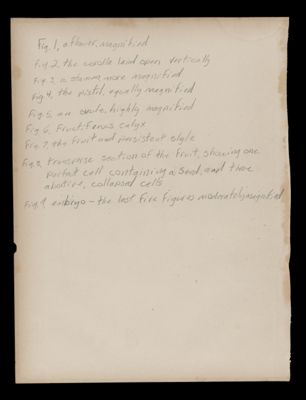 Fig. 1, a flower, magnified
Fig. 2, the corolla laid open vertically
Fig. 3, a stamen, more magnified
Fig. 4, the pistil, equally magnified
Fig. 5, an ovule, highly magnified
Fig. 6, Fructiferous calyx
Fig. 7, the fruit and persistent style
Fig. 8, transverse section of the fruit, showing one
perfect cell containing a seed, and three
abortive, collapsed cells
Fig. 9, embryo - the last five figures moderately magnified